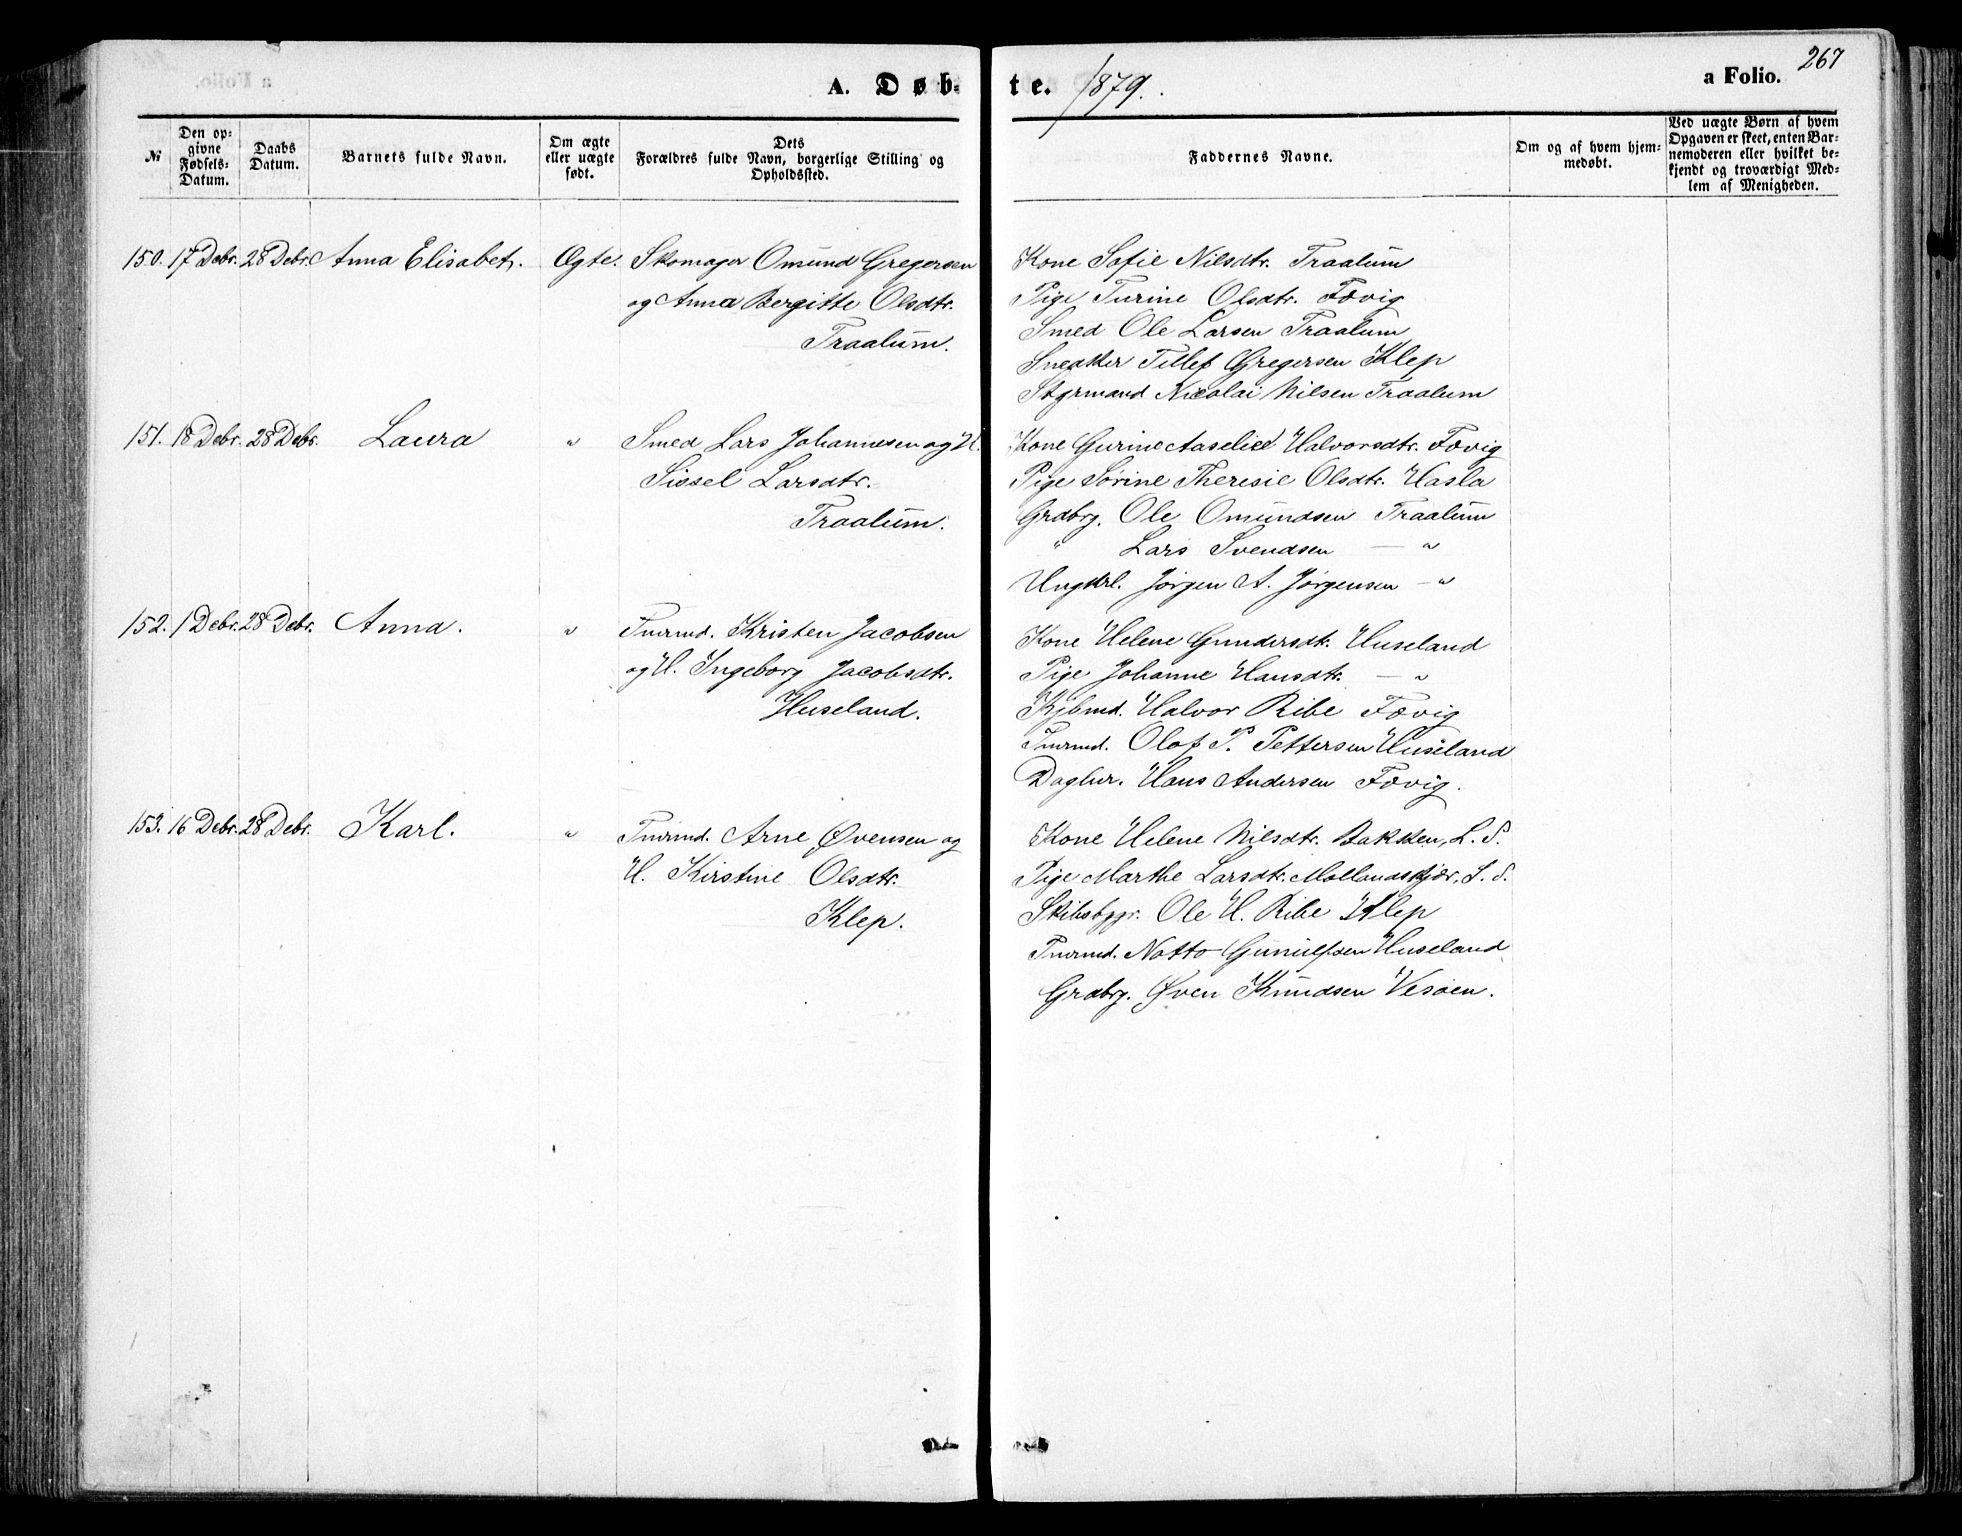 A. Døb-te. 1879. a Folio. 267
№ Den op-givne Fødsels-Datum. Daabs Datum. Barnets fulde Navn. Om ægte eller uægte født. Dets Forældres fulde Navn, borgerlige Stilling og Opholdssted. Faddernes Navne. Om og af hvem hjem-medøbt. Ved uægte Børn af hvem Opgaven er skeet, enten Bar-nemoderen eller hvilket be-kjendt og troværdigt Med-lem af Menigheden.
150. 17 Debr. 28 Debr. Anna Elisabet. Ægte. Skomager Omund Gregersen Kone Sofie Nilsdtr. Traalum
og Anna Bergitte Olsdtr. Pige Turine Olsdtr. Fævig
Traalum. Smed Ole Larsen Traalum
Snedker Tellef Gregersen Klep
Styrmand Nicolai Nilsen Traalum
151. 18 Debr. 28 Debr. Laura " Smed Lars Johannesen og H. Kone Gurine Aaselie Halvorsdtr. Fævig
Sissel Larsdtr. Pige Sørine Theresie Olsdtr. Hasla
Traalum. Grdbrg. Ole Omundsen Traalum
" Lars Svendsen — "
Ungkrl. Jørgen A. Jørgensen — "
152. 1 Debr. 28 Debr. Anna. " Tmrmd. Kristen Jacobsen Kone Helene Gundersdtr. Huseland
og H. Ingeborg Jacobsdtr. Pige Johanne Hansdtr. — "
Huseland. Kjbmd. Halvor Ribe Fævig
Tmrmd. Olof P. Pettersen Huseland
Daglnr. Hans Andersen Fævig.
153. 16 Debr. 28 Debr. Karl. " Tmrmd. Arne Øvensen og Kone Helene Nilsdtr. Bakken, L. S.
H. Kirstine Olsdtr. Pige Marthe Larsdtr. Mollandskjær, L. S.
Klep. Skibsbygr. Ole H. Ribe Klep
Tmrmd. Notto Gunulfsen Huseland
Grdbrg. Øven Knudsen Vesøen.